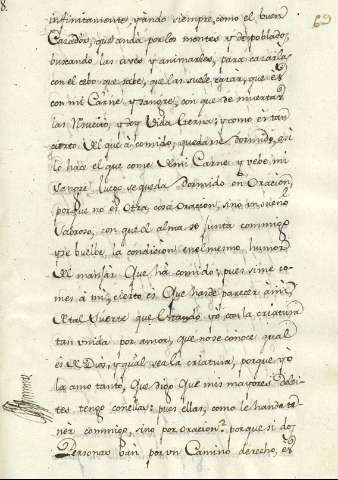 8.
69
infinitamientes, yando siempre, como el buen
Casador, que anda por los montes y despoblados,
buscando las aves y animalles, para casarlas
con el cebo que sabe, que las suele, que es
con mi Carne y sangre, con que de muertas
las Resucito, y doy Vida Eterna; y como es tan
cierto el que à comido, quedarse dormido, así
lo hace el que come mi Carne y vebe mi
sangre, luego se queda Dormido en Oracion,
porque no es Otra cosa Oracion, sino un sueño
Sabroso, con que el alma se junta commigo
y se buelbe la condicion en el mesmo humor
del manjar Que ha comido; pues si me co-
mes à mi, cierto es Que ha de parecer à mi,
de tal suerte que Estando yò con la criatura
tan unida por amor, que no se conoce qual
es el Dios, y qual sea la criatura, porque yò
la amo tanto, Que digo Que mis mayores Deli-
tes tengo con ella; pues ellas, como le han de te-
ner commigo, sino por oracion? porque si dos
Personas ban por un Camino derecho, es